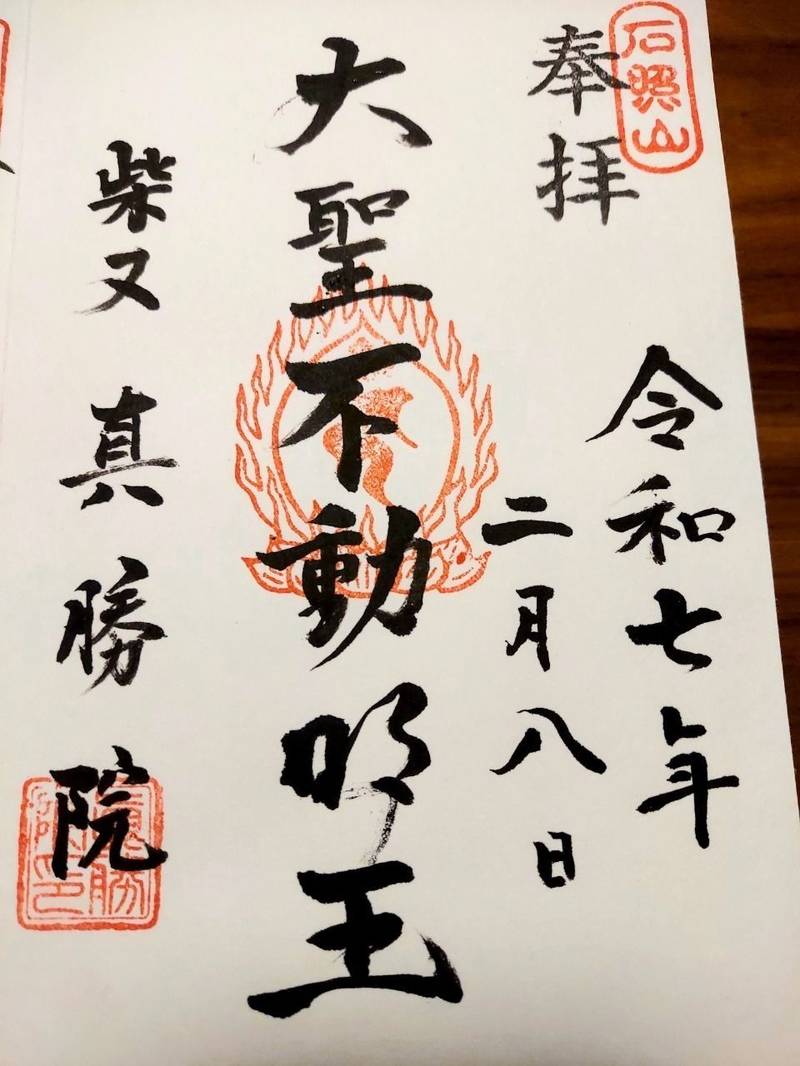 石照山
奉拝
令和七年
二月八日
大聖不動明王
柴又 真勝院
真勝院印